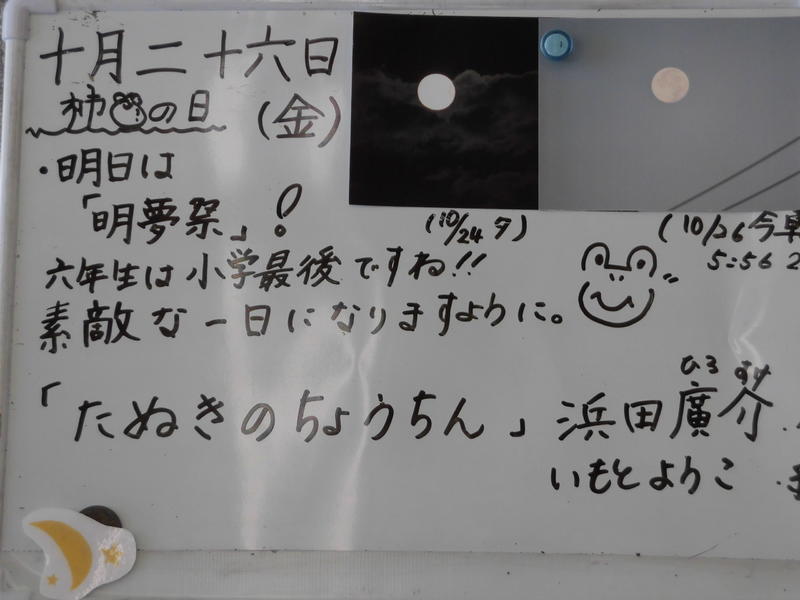 十月二十六日
柿の日
(金)
・明日は
「明夢祭」!
(10/24 夕)
(10/26 今朝
5:56
六年生は小学最後ですね!!
素敵な一日になりますように。
「たぬきのちょうちん」浜田廣介
ひろ すけ
いもとようこ